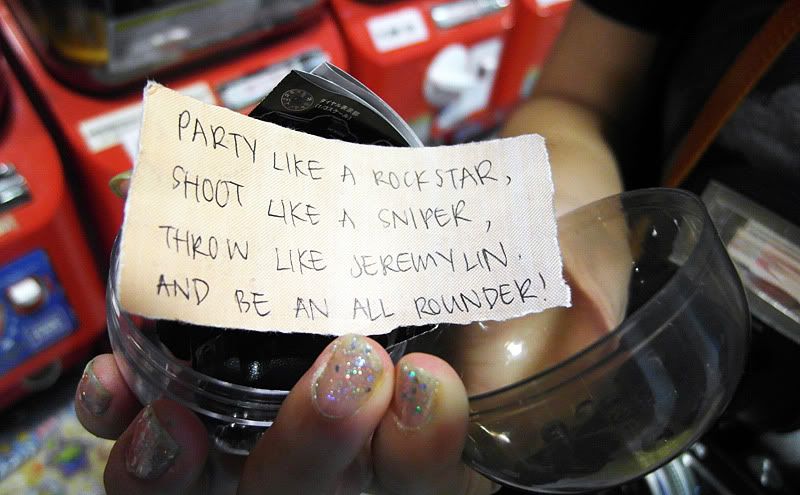 PARTY LIKE A ROCKSTAR,
SHOOT LIKE A SNIPER,
THROW LIKE JEREMY LIN.
AND BE AN ALL ROUNDER!